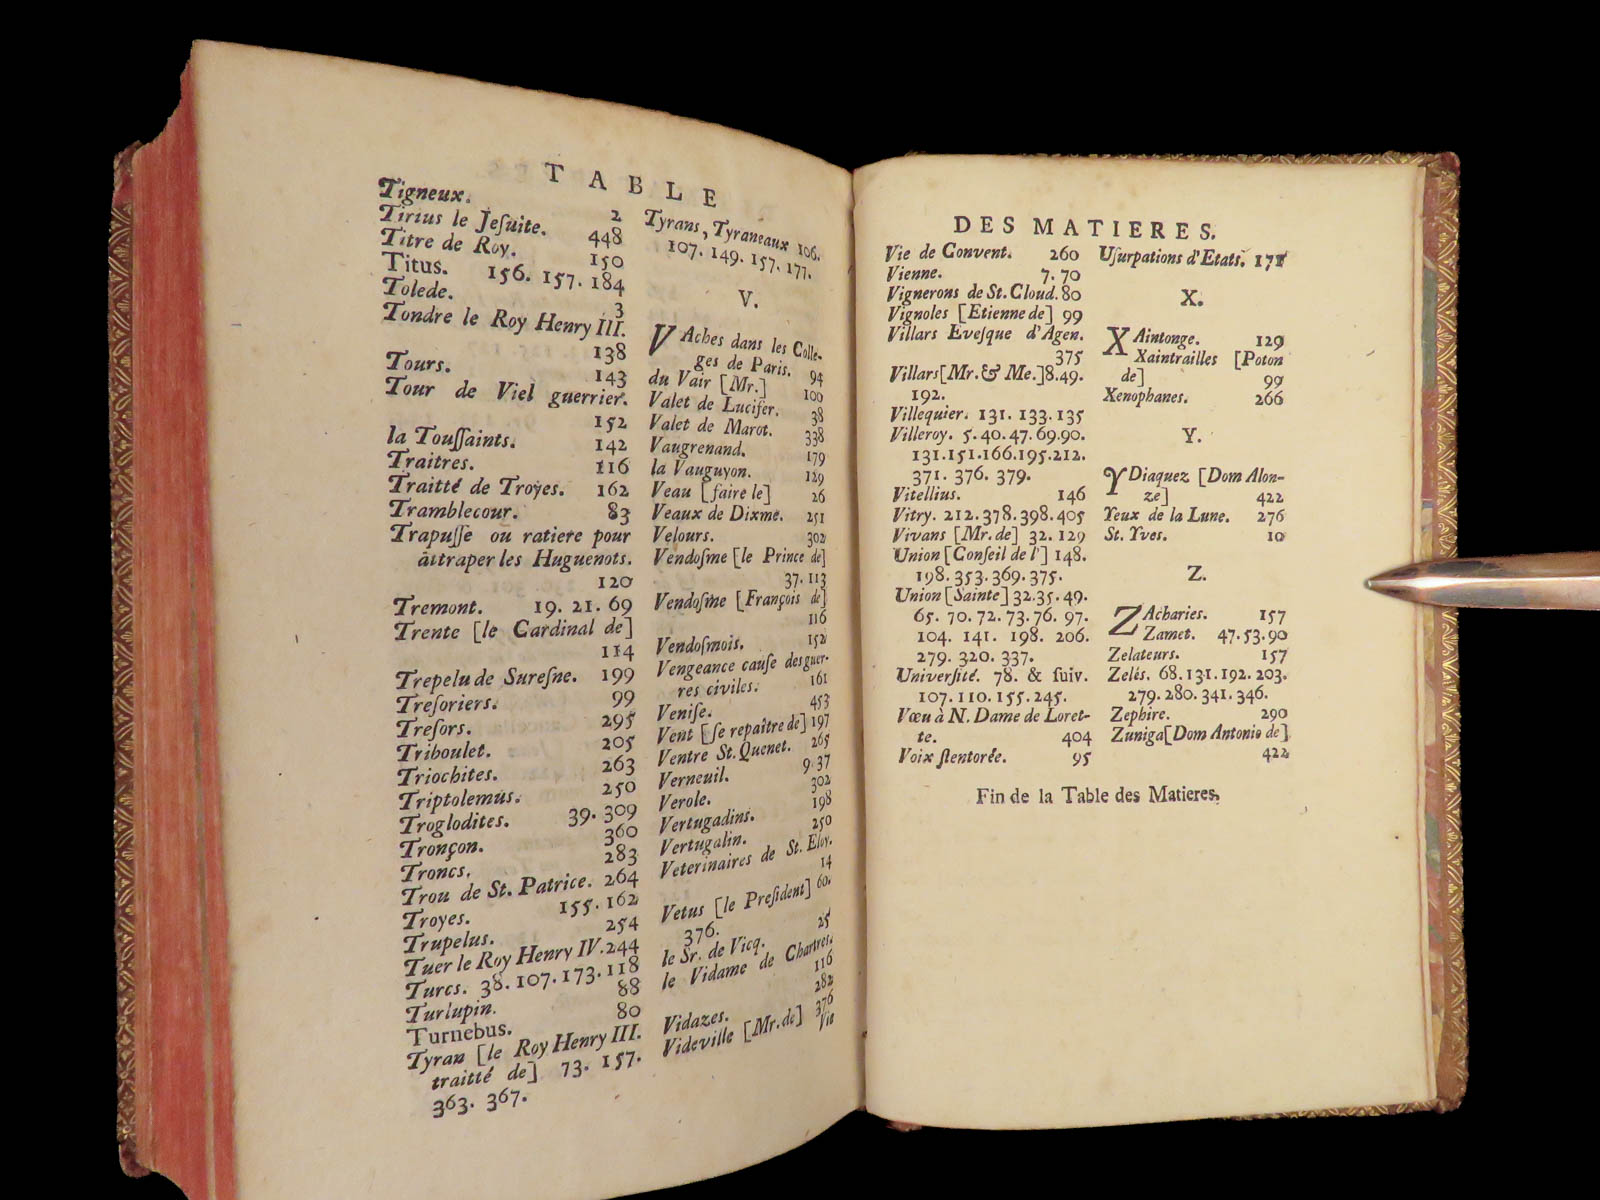 TABLE
Tigneux. 2
Tirius le Jeſuite. 448
Titre de Roy. 150
Titus. 156. 157. 184
Tolede. 3
Tondre le Roy Henry III.
138
Tours. 143
Tour de Viel guerrier.
152
la Touſſaints. 142
Traitres. 116
Traitté de Troyes. 162
Tramblecour. 83
Trapuſſe ou ratiere pour
attraper les Huguenots.
120
Tremont. 19. 21. 69
Trente [le Cardinal de]
114
Trepelu de Sureſne. 199
Treſoriers. 99
Treſors. 295
Triboulet. 205
Triochites. 263
Triptolemus. 250
Troglodites. 39. 309
Tronçon. 360
Troncs. 283
Trou de St. Patrice. 264
Troyes. 155. 162
Trupelus. 254
Tuer le Roy Henry IV. 244
Turcs. 38. 107. 173. 118
Turlupin. 88
Turnebus. 80
Tyran [le Roy Henry III.
traitté de] 73. 157.
363. 367.
Tyrans, Tyraneaux 106.
107. 149. 157. 177.
V.
VAches dans les Colle-
ges de Paris. 94
du Vair [Mr.] 100
Valet de Lucifer. 38
Valet de Marot. 338
Vaugrenand. 179
la Vauguyon. 129
Veau [faire le] 26
Veaux de Dixme. 251
Velours. 302
Vendoſme [le Prince de]
37. 113
Vendoſme [François de]
116
Vendoſmois. 152
Vengeance cauſe des guer-
res civiles. 161
Veniſe. 453
Vent [ſe repaître de] 197
Ventre St. Quenet. 265
Verneuil. 9. 37
Verole. 302
Vertugadins. 198
Vertugalin. 250
Veterinaires de St. Eloy.
14
Vetus [le Preſident] 60.
376.
le Sr. de Vicq. 25
le Vidame de Chartres.
116
Vidazes. 282
Videville [Mr. de] 376
Vie
DES MATIERES.
Vie de Convent. 260
Vienne. 7. 70
Vignerons de St. Cloud. 80
Vignoles [Etienne de] 99
Villars Eveſque d'Agen.
375
Villars [Mr. & Me.] 8. 49.
192.
Villequier. 131. 133. 135
Villeroy. 5. 40. 47. 69. 90.
131. 151. 166. 195. 212.
371. 376. 379.
Vitellius. 146
Vitry. 212. 378. 398. 405
Vivans [Mr. de] 32. 129
Union [Conſeil de l'] 148.
198. 353. 369. 375.
Union [Sainte] 32. 35. 49.
65. 70. 72. 73. 76. 97.
104. 141. 198. 206.
279. 320. 337.
Univerſité. 78. & ſuiv.
107. 110. 155. 245.
Vœu à N. Dame de Loret-
te. 404
Voix ſtentorée. 95
Uſurpations d'Etats. 171
X.
XAintonge. 129
Xaintrailles [Poton
de] 99
Xenophanes. 266
Y.
YDiaquez [Dom Alon-
ze] 422
Yeux de la Lune. 276
St. Yves. 10
Z.
ZAcharies. 157
Zamet. 47. 53. 90
Zelateurs. 157
Zelés. 68. 131. 192. 203.
279. 280. 341. 346.
Zephire. 290
Zuniga [Dom Antonio de]
422
Fin de la Table des Matieres.